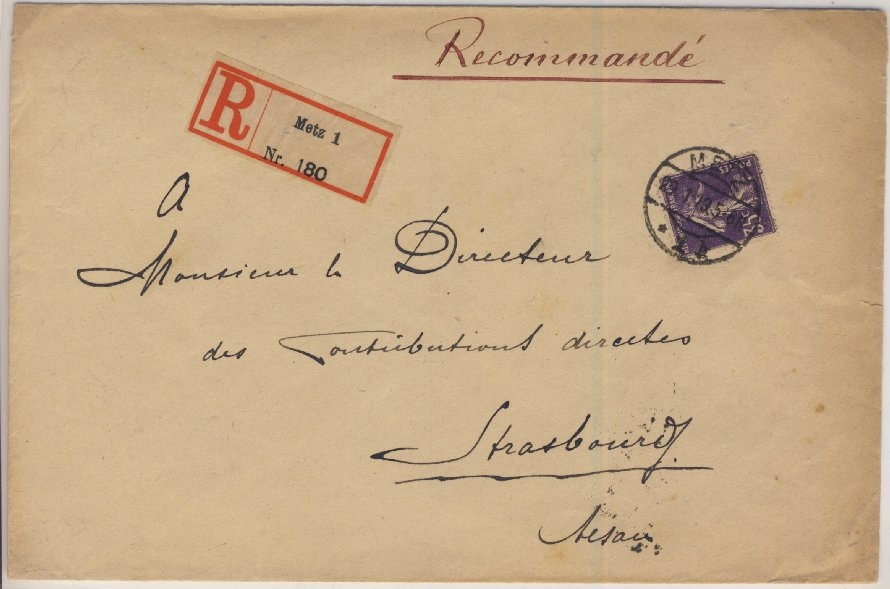 Recommandé
R
Metz 1
Nr. 180
A
Monsieur le Directeur
des Contributions directes
Strasbourg
POSTES
35